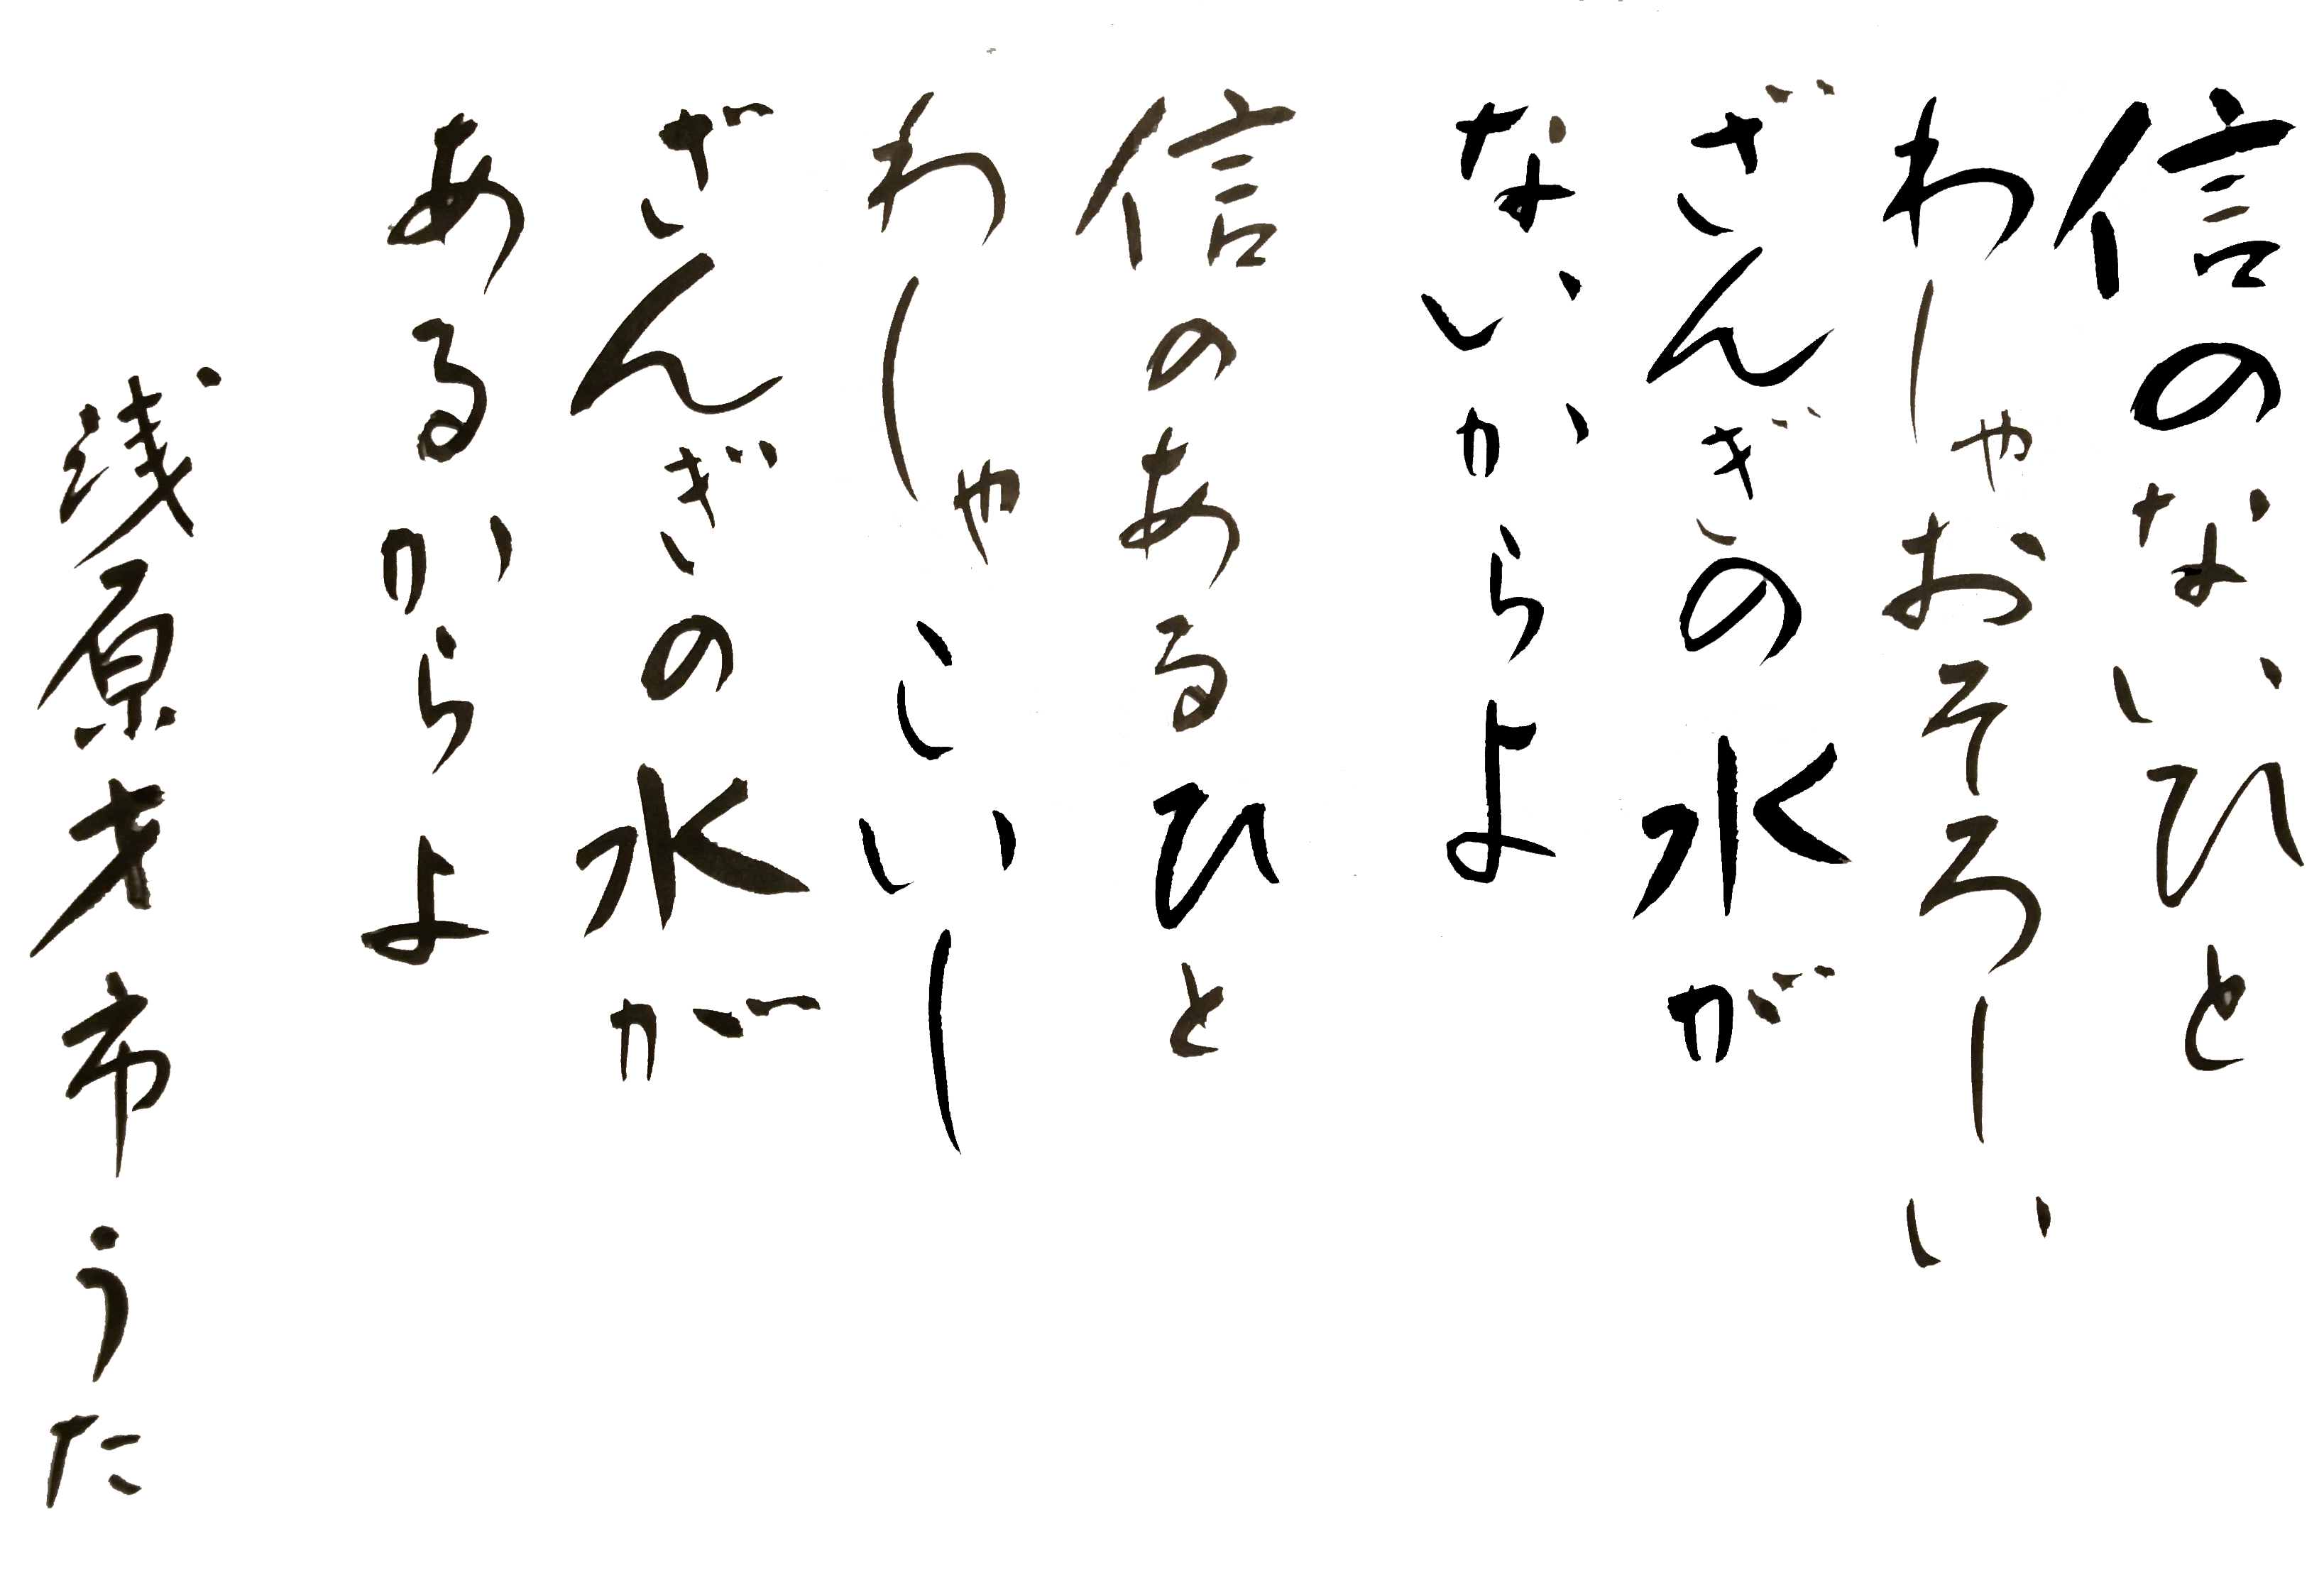 信のないひと
わしゃおそろしい
ざんぎの水が
ないからよ
信のあるひと
わしゃこいし
ざんぎの水が
あるからよ
浅原才市うた